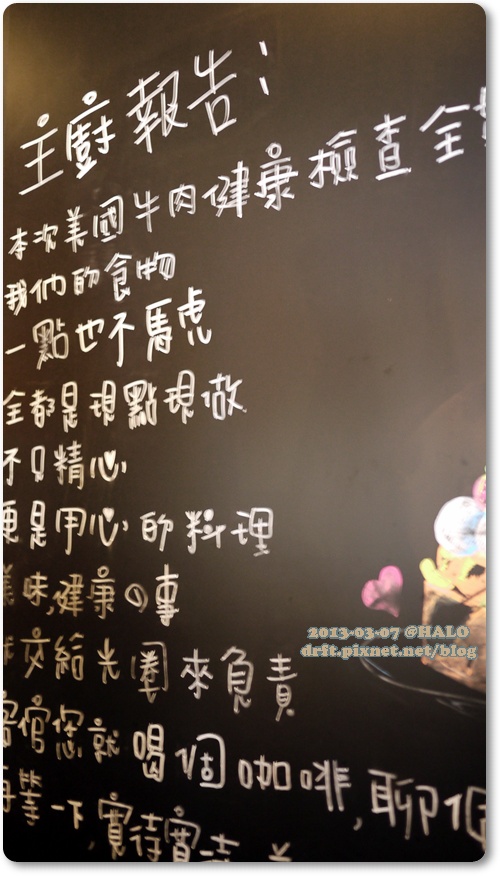 主廚報告：
本次美國牛肉健康檢查全
我們的食物
一點也不馬虎
全都是現點現做
不只精心
更是用心的料理
美味,健康の事
交給光圈來負責
客倌您就喝個咖啡,聊個
再等一下,實待實
2013-03-07 @HALO
drft.pixnet.net/blog